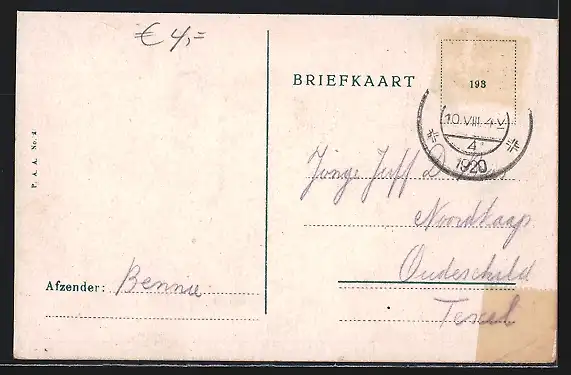 € 4,=
BRIEFKAART
193
10.VIII.4-V
4
1920
P. A. A. No. 4
Jonge Juff
Noordkaap
Oudeschild
Texel
Afzender: Bennie